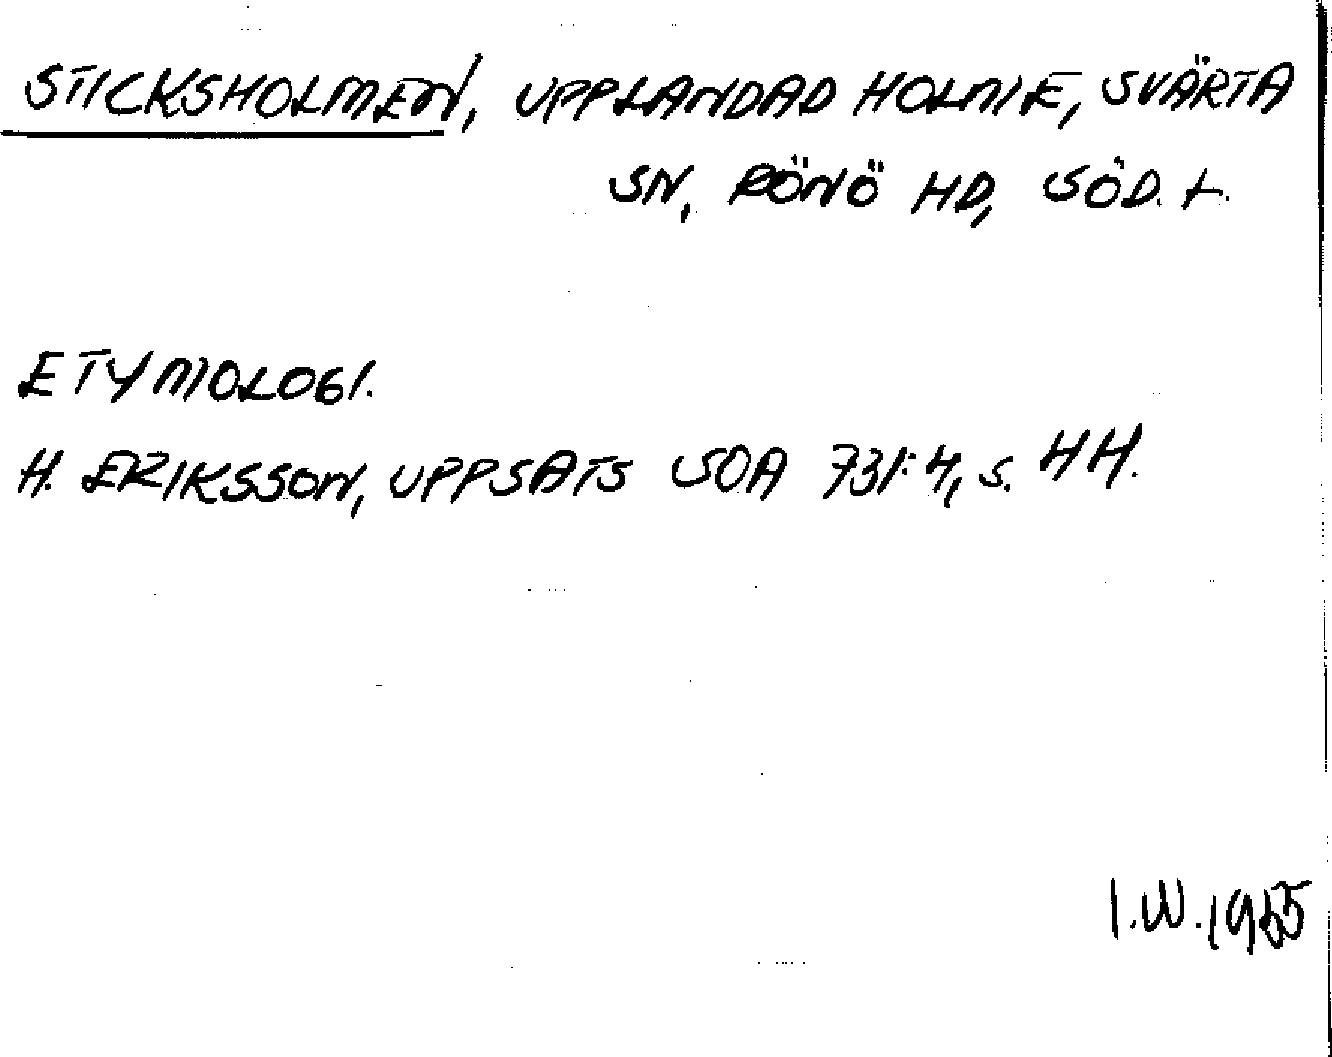 STICKSHOLMEN, UPPLANDAD HOLME, SVÄRTA
SN, RÖNÖ HD, SÖD. L.
ETYMOLOGI.
H. ERIKSSON, UPPSATS SOA 731:4, S. 44.
I.W. 1985